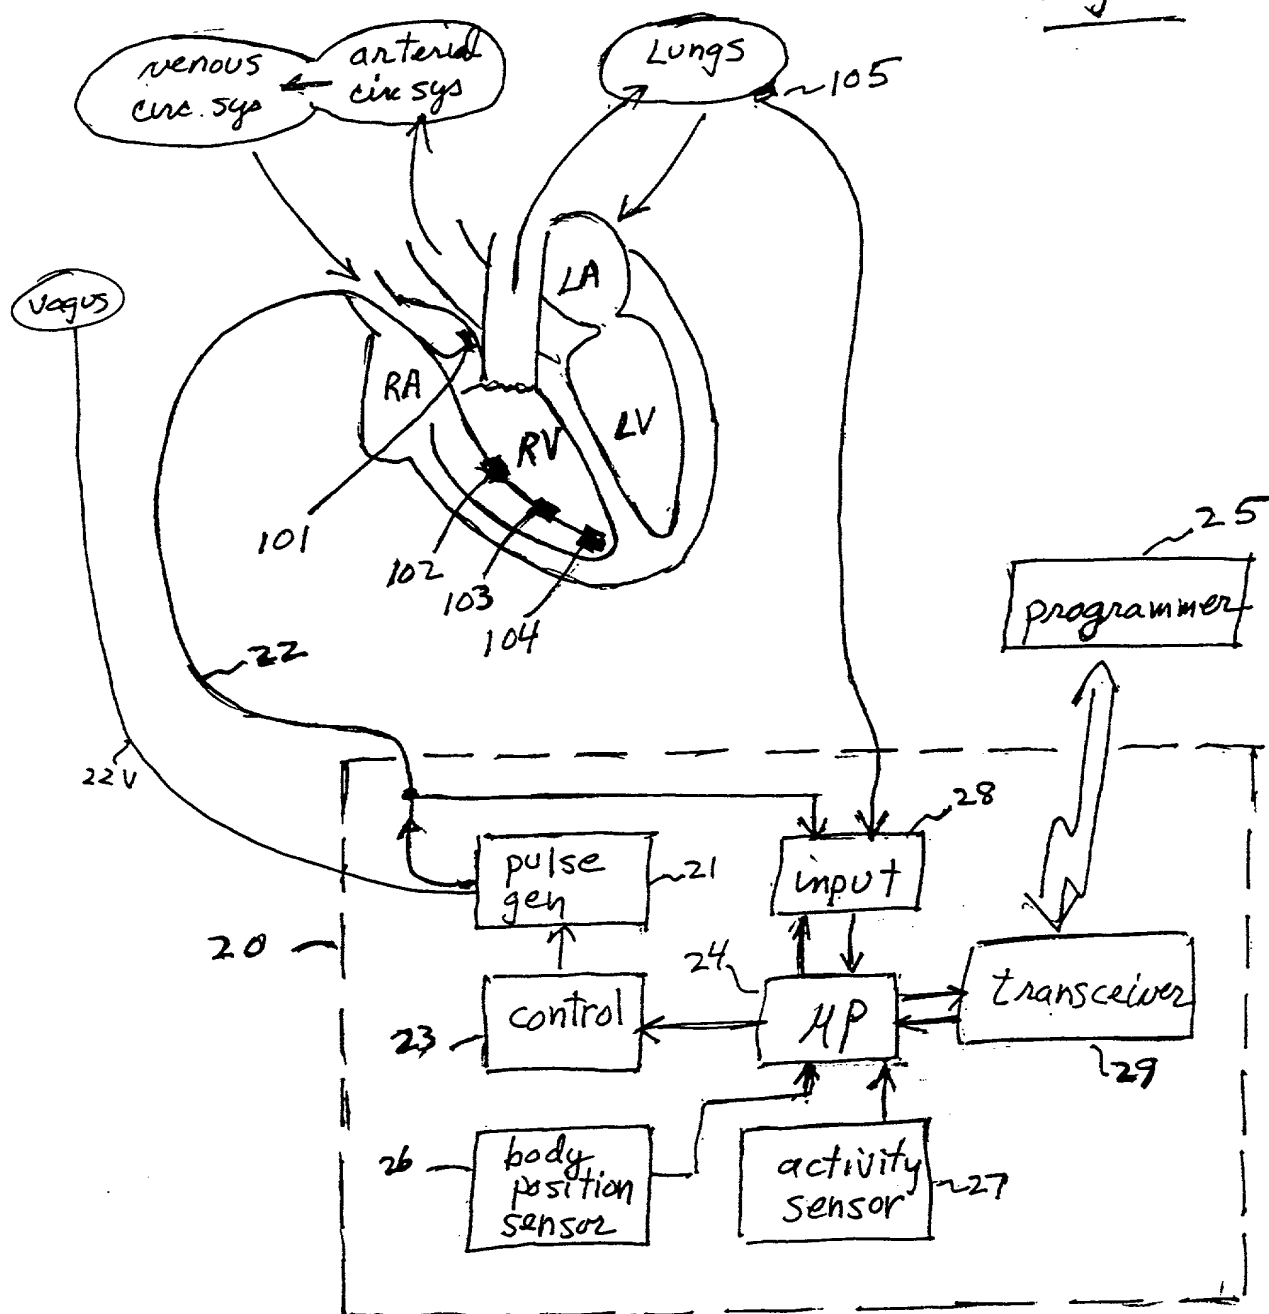 venous
circ. sys
arterial
circ sys
Lungs
105
vagus
LA
RA
LV
RV
101
102
103
104
25
programmer
22
22V
28
input
pulse
gen
21
20
24
control
μP
transceiver
23
29
26
body
position
sensor
activity
sensor
27